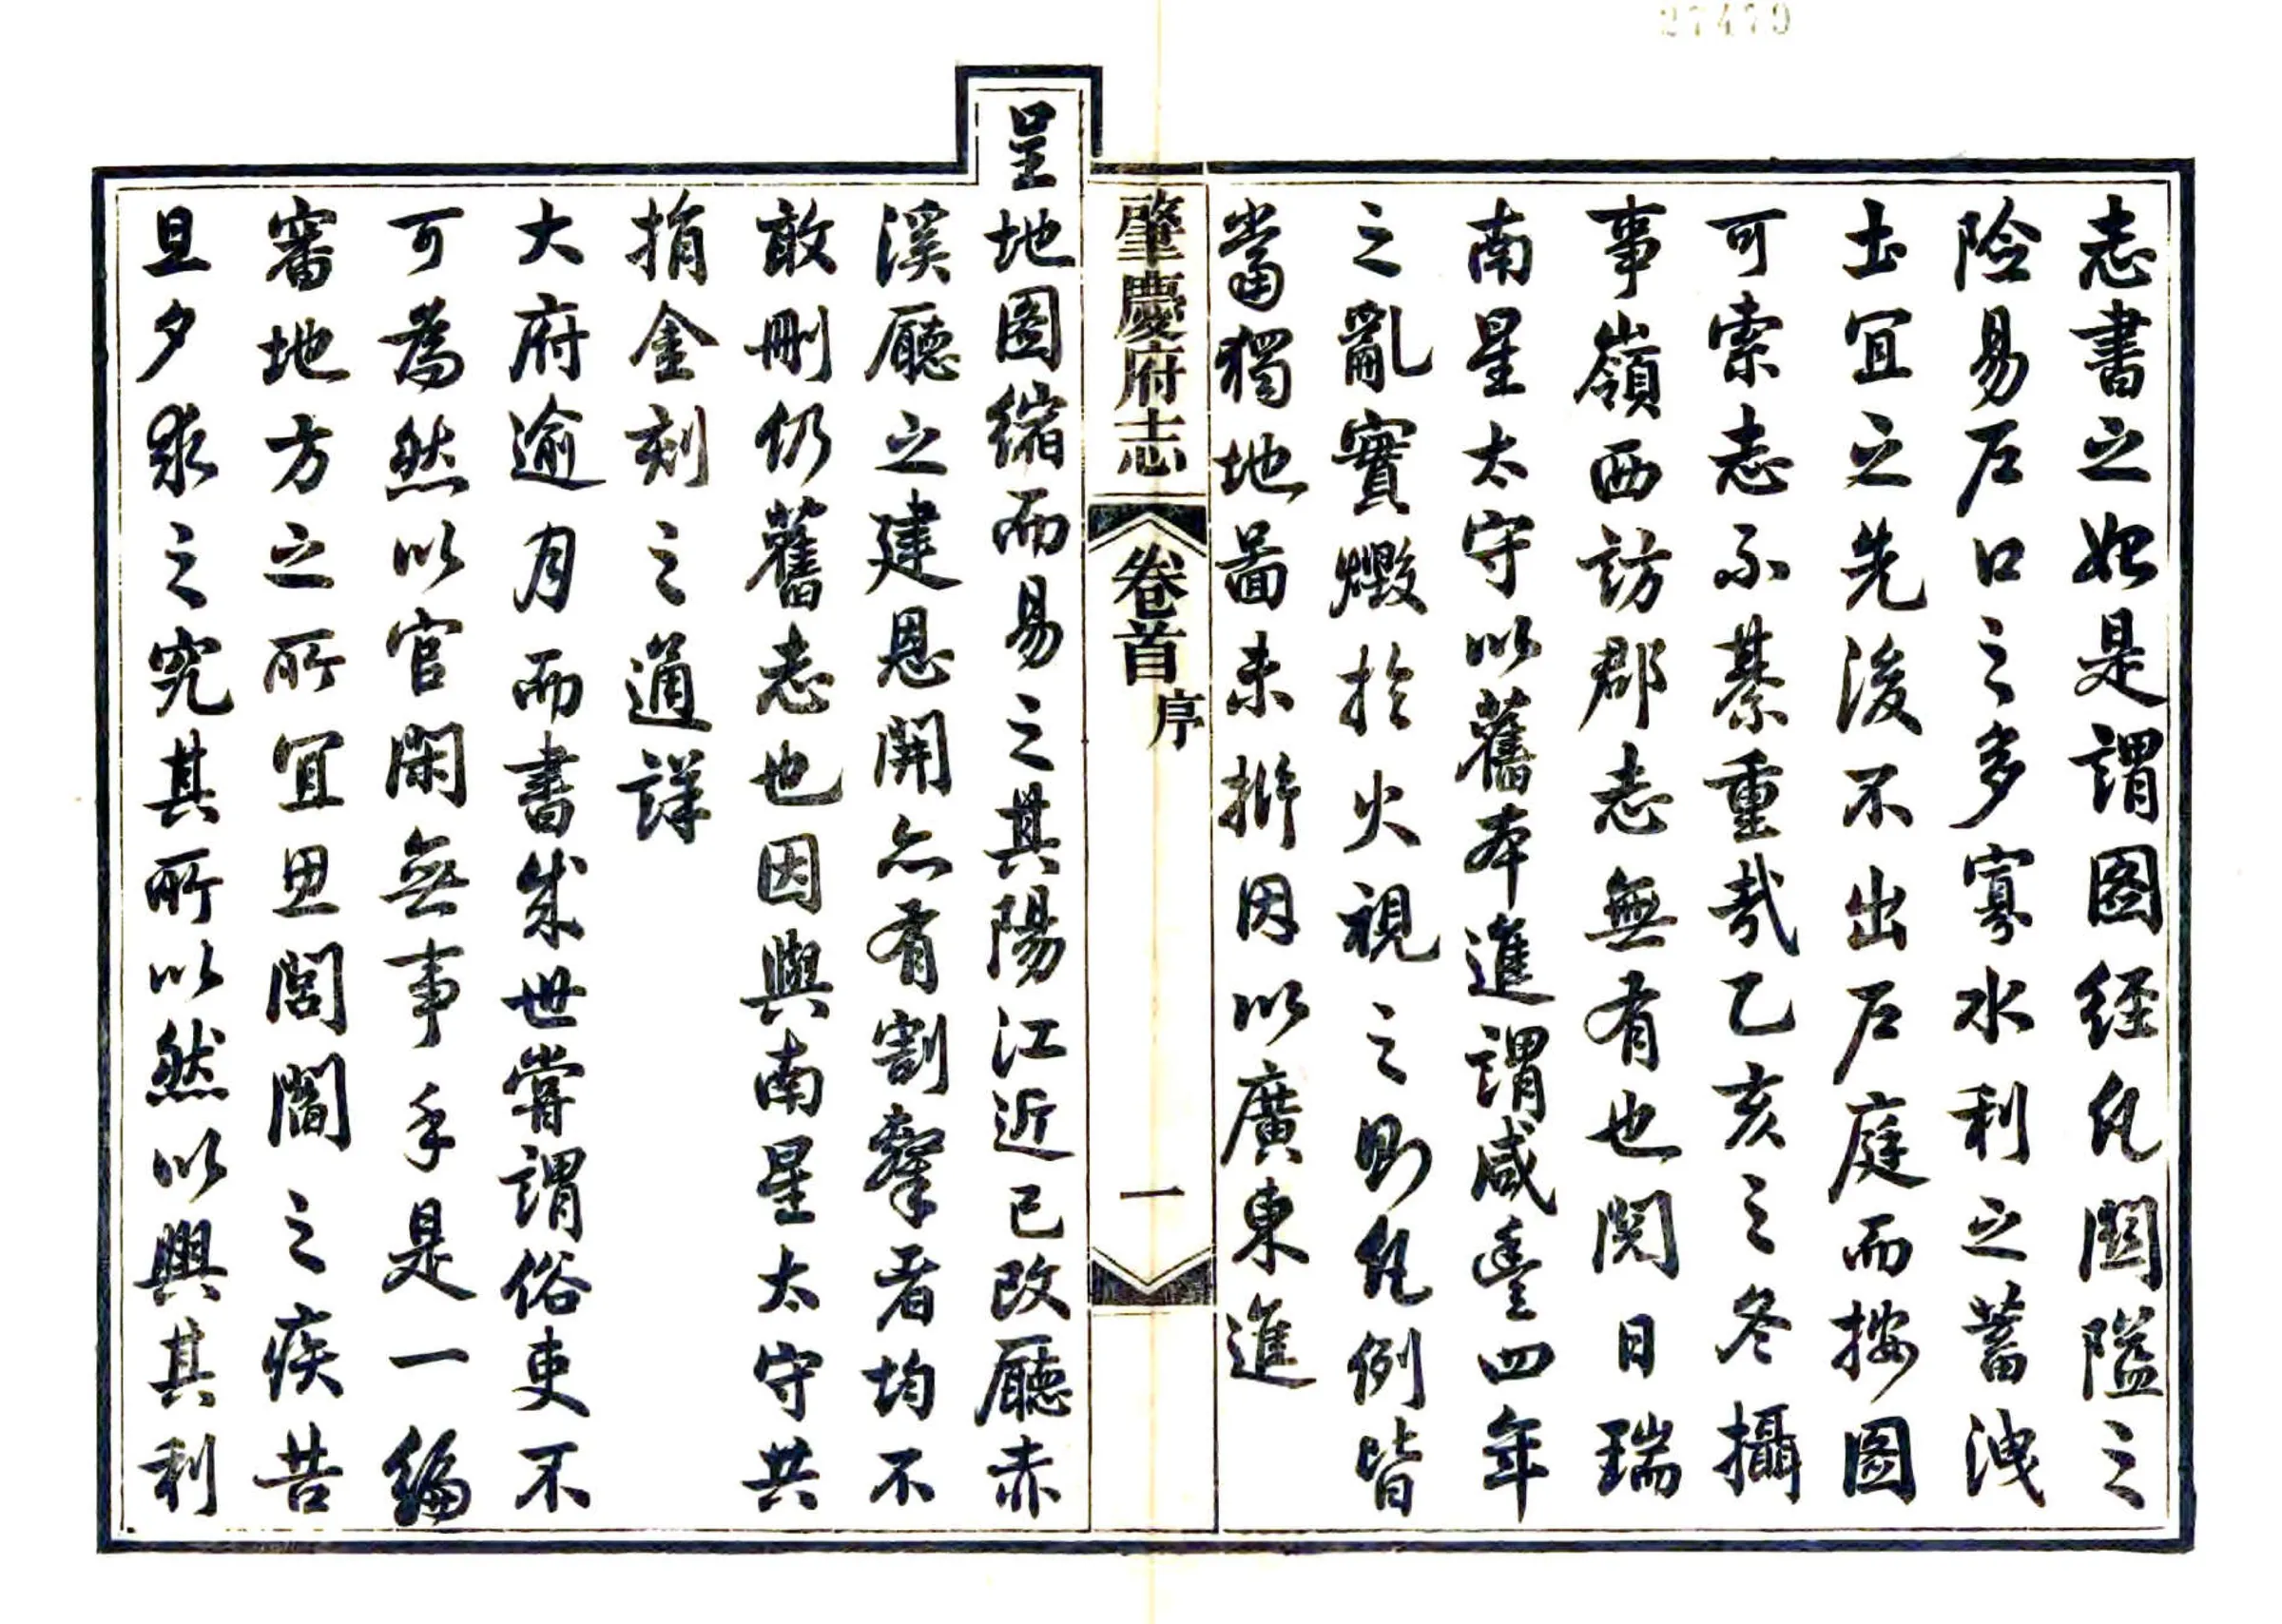 志書之始是謂圖經凡關隘之
險易戶口之多寡水利之蓄洩
土宜之先後不出戶庭而按圖
可索志不綦重哉乙亥之冬攝
事嶺西訪郡志無有也閱日瑞
南星太守以舊本進謂咸豐四年
之亂實燬於火視之則凡例皆
當獨地圖未拚因以廣東進
肇慶府志
卷首
序
一
呈地圖縮而易之其陽江近已改廳赤
溪廳之建恩開亦有割撥者均不
敢刪仍舊志也因與南星太守共
捐金刻之通詳
大府逾月而書成世嘗謂俗吏不
可為然以官閑無事手是一編
審地方之所宜思閭閻之疾苦
旦夕求之究其所以然以興其利
27479